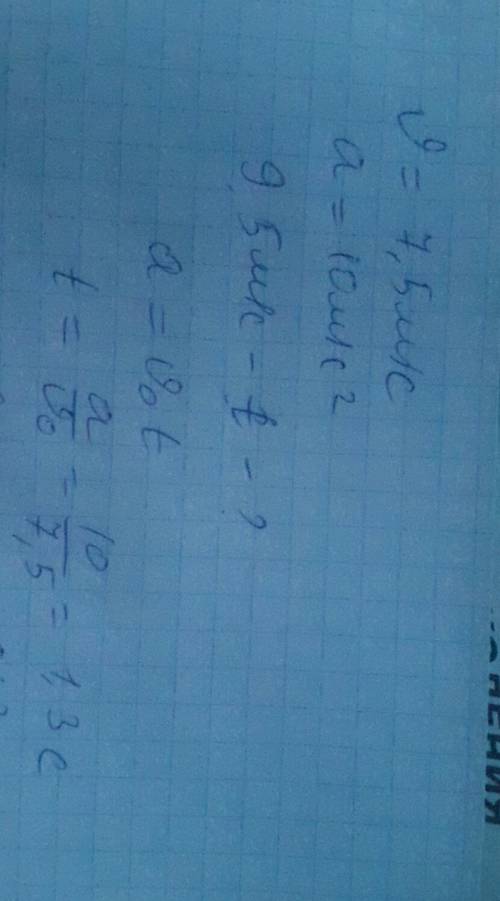 𝜗 = 7,5мс
a = 10мс²
9,5мс - t - ?
a = 𝜗₀t
t = a/𝜗₀ = 10/7,5 = 1,3 с
НЕНИЯ